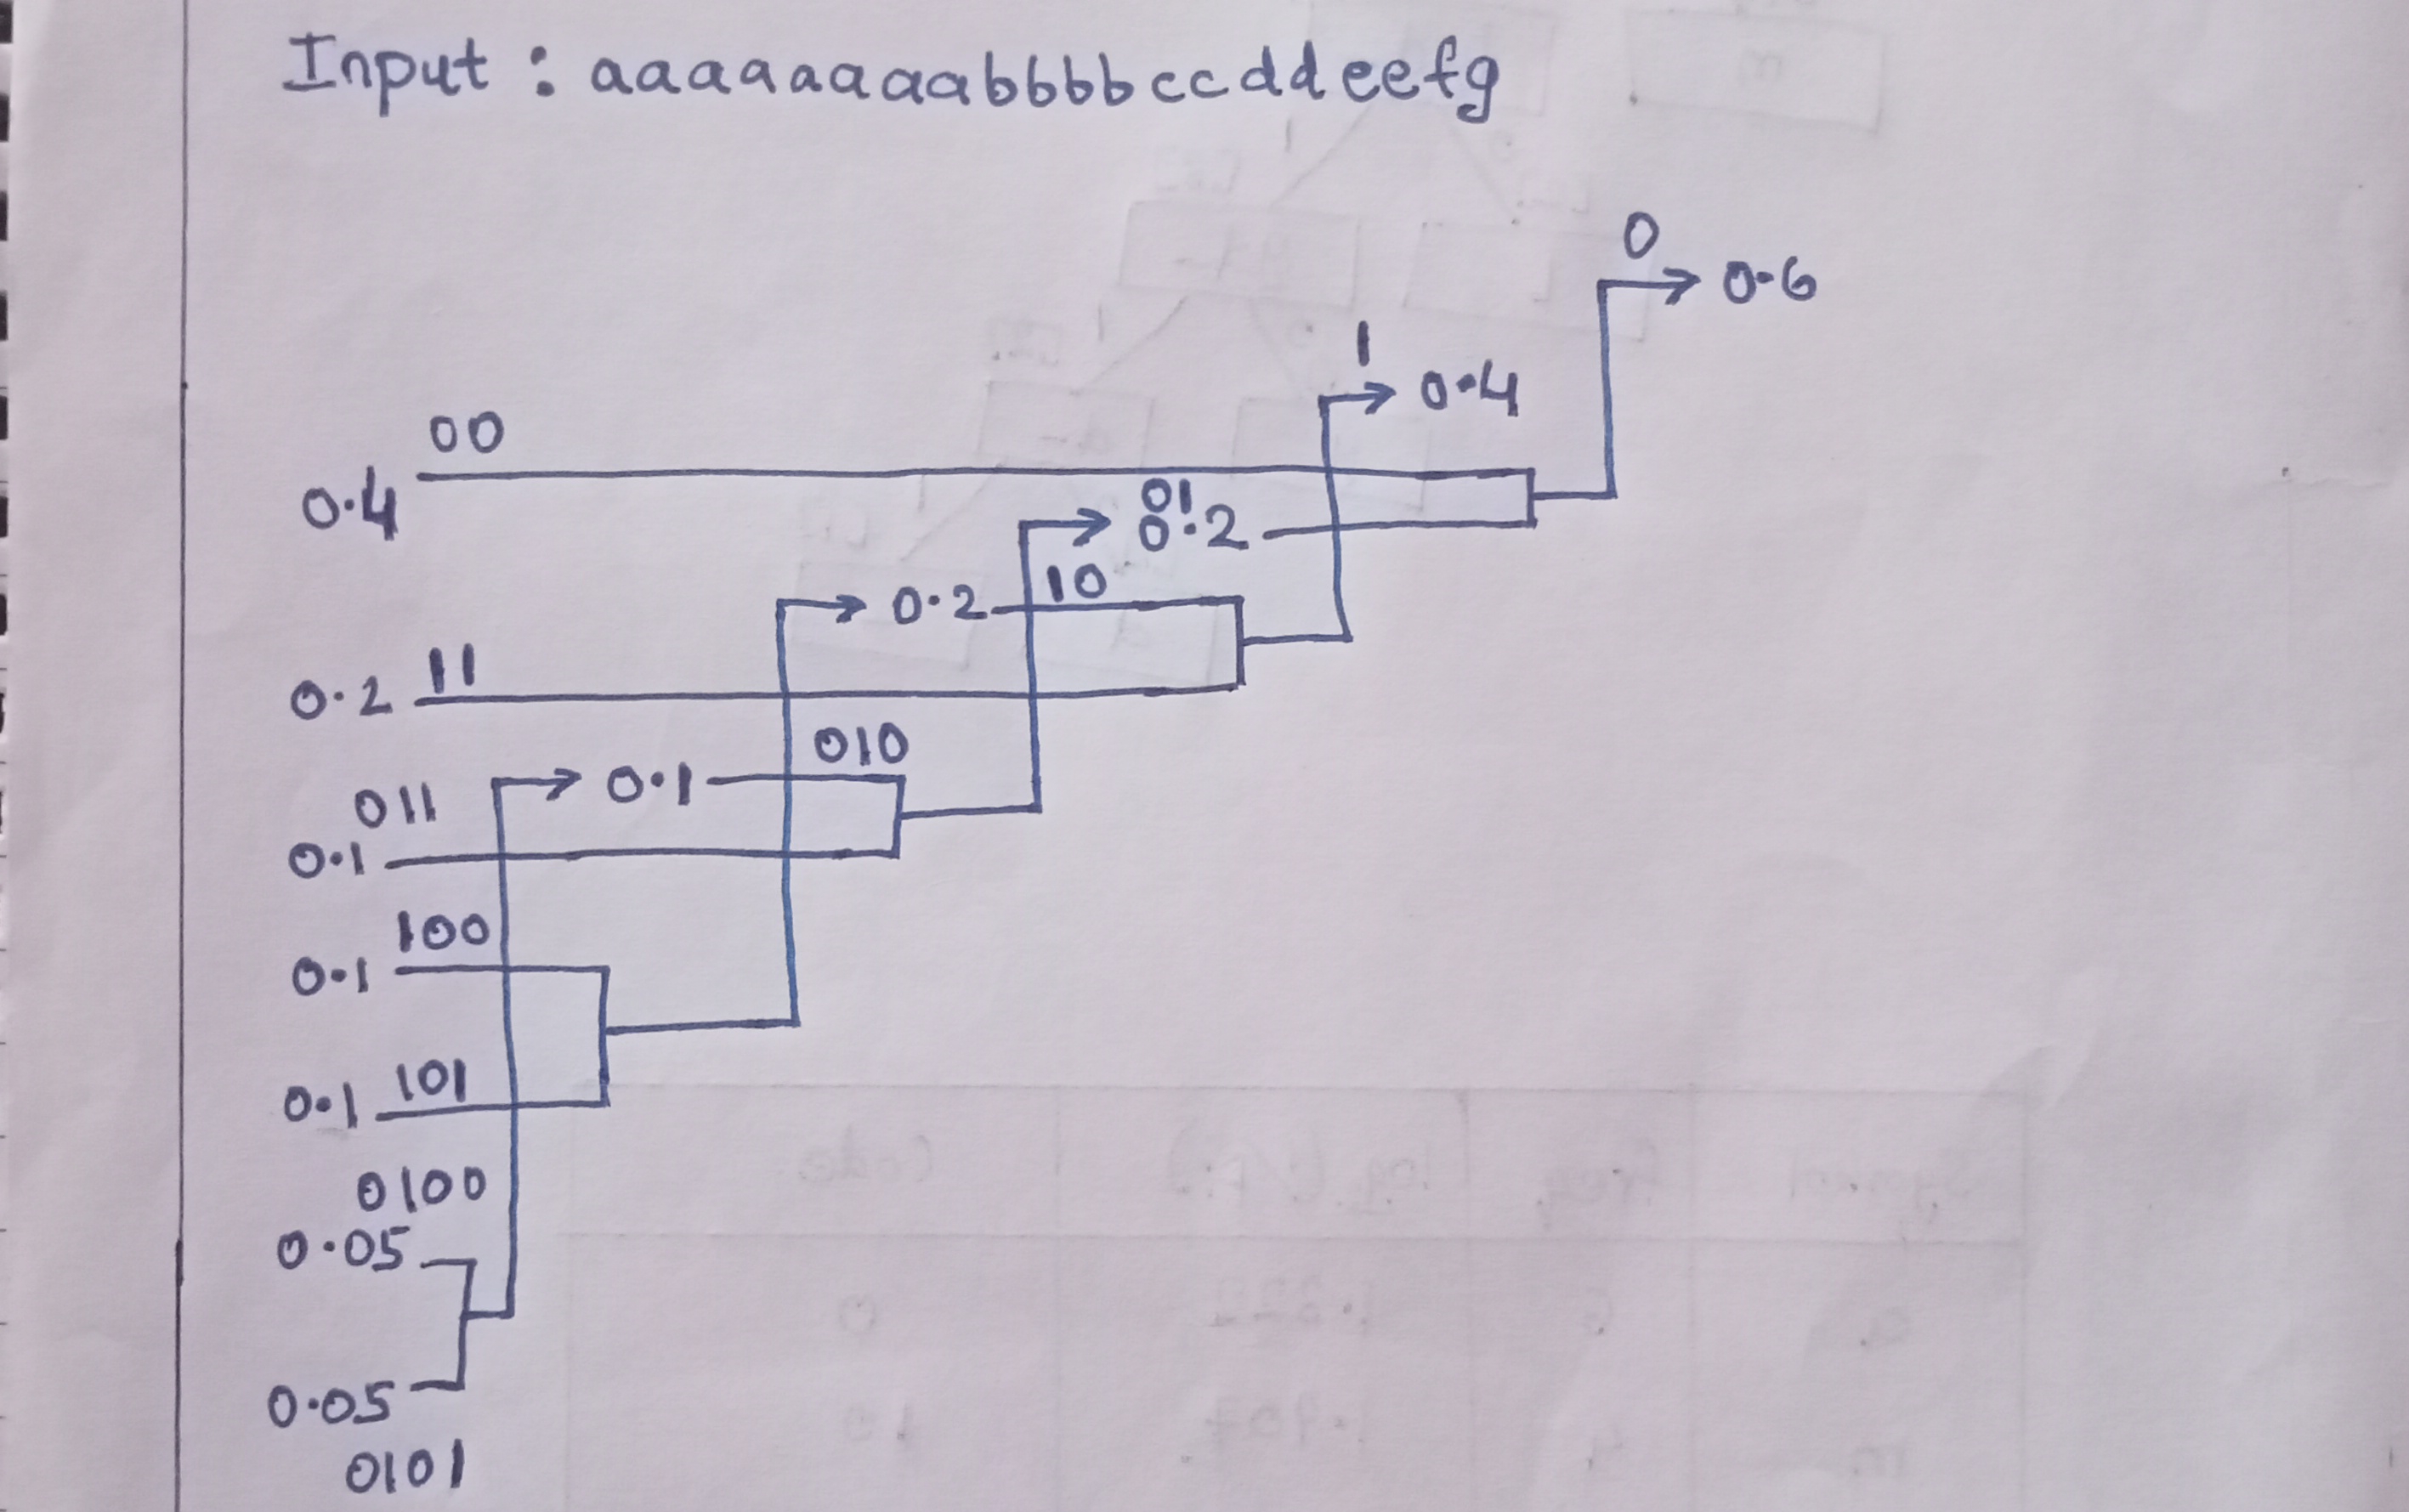 Input : aaaaaaaabbbbccddeefg
0
0.6
1
0.4
00
0.4
01
0.2
0.2 10
0.2 11
010
011 0.1
0.1
100
0.1
101
0.1
0100
0.05
0.05
0101